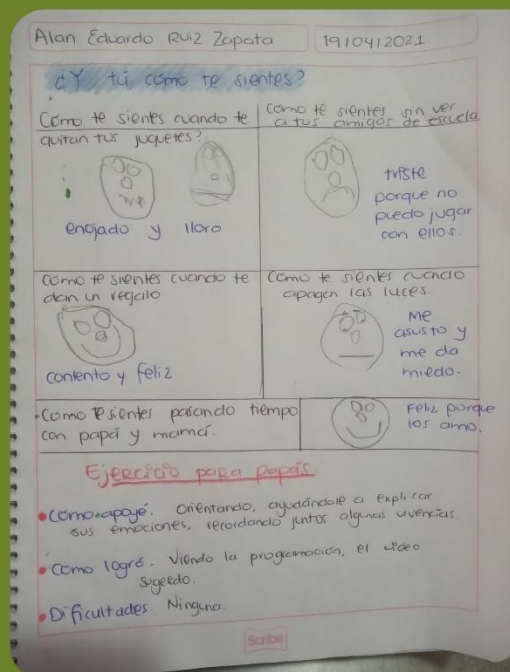 Alan Eduardo Ruiz Zapata
19/04/2021
¿Y tú como te sientes?
Como te sientes cuando te
quitan tus juguetes?
enojado y lloro
como te sientes sin ver
a tus amigos de escuela
triste
porque no
puedo jugar
con ellos.
como te sientes cuando te
dan un regalo
contento y feliz
Como te sientes cuando
apagan las luces.
Me
asusto y
me da
miedo.
como te sientes pasando tiempo
con papá y mamá.
Feliz porque
los amo.
Ejercicio para papás.
• como apoyé. Orientando, ayudándole a explicar
sus emociones, recordando juntos algunas vivencias.
• como logró. Viendo la programación, el video
sugeedo.
• Dificultades. Ninguna.
Scribe